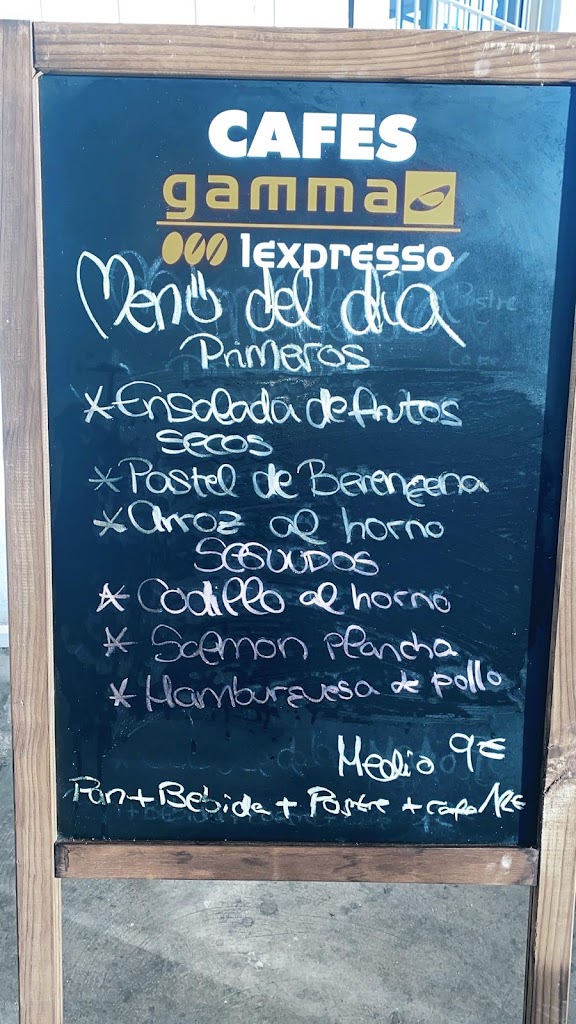 CAFES
gamma
1expresso
Menú del día
Primeros
* Ensalada de frutos
secos
* Pastel de Berengena
* Arroz al horno
SEGUNDOS
* Codillo al horno
* Salmon plancha
* Hamburguesa de pollo
Medio 9€
Pan + Bebida + Postre + cafe 12€